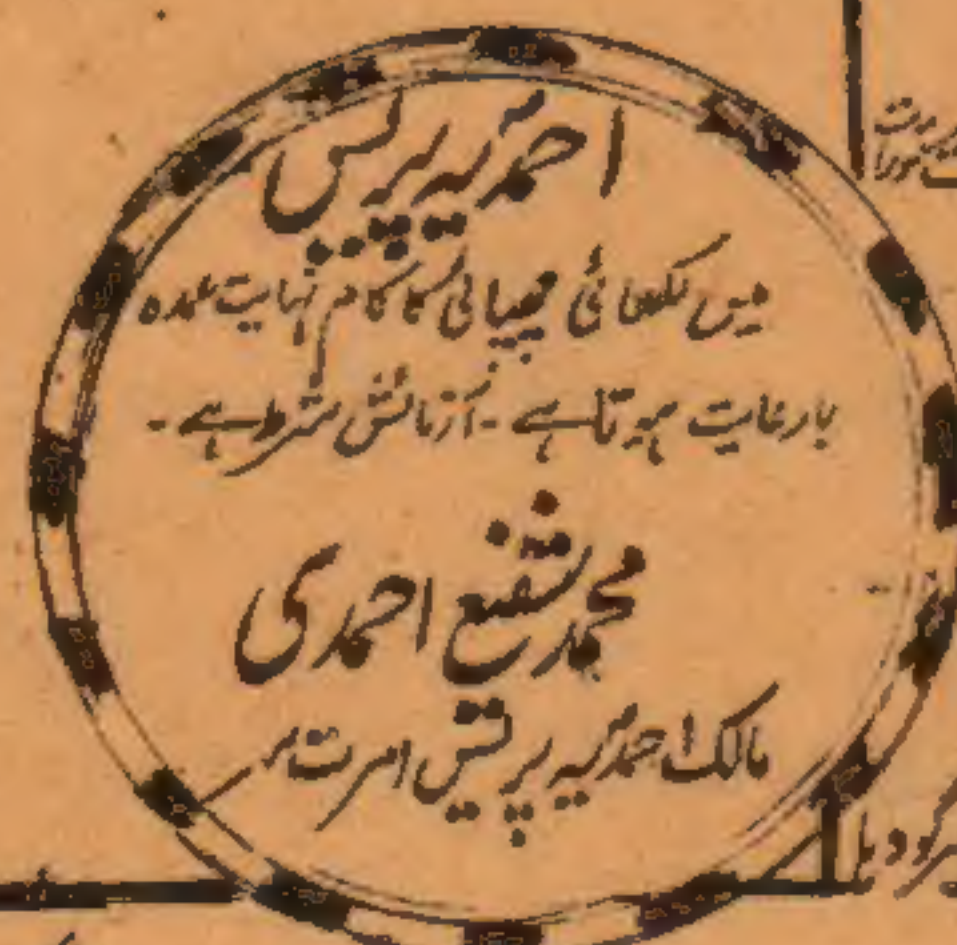 احمدیہ پریس
میں لکھائی چھپائی کا کام نہایت عمدہ
بارعایت ہوتا ہے - آزمائش شرط ہے -
محمد شفیع احمدی
مالک احمدیہ پریس امرتسر